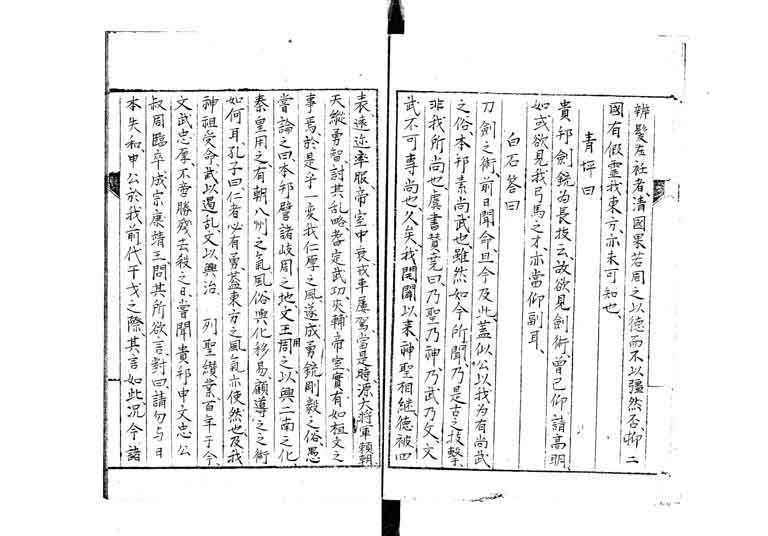 辨髮左衽者、清國果若周之以德而不以彊然否、抑二
國有假靈我東方、亦未可知也、
青坪曰
貴邦劍銃為長技云、故欲見劍術、曾已仰請高明
如或欲見我弓馬之才、亦當仰副耳、
白石答曰
刀劍之術、前日聞命、且今及此、蓋似公以我為有尚武
之俗、本邦素尚武也、雖然如今所聞、乃是古之技擊、
非我所尚也、虞書贊堯曰、乃聖乃神、乃武乃文、文
武不可專尚也久矣、我開闢以來、神聖相繼、德被四
表、遠近率服、帝室中衰、戎車屢駕、當是時、源大將軍賴朝
天縱勇智、討其乱略、耆定武功、夾輔帝室、實有如桓文之
事焉、於是乎一変我仁厚之風、遂成勇銳剛毅之俗、愚
嘗論之曰、本邦譬諸岐周之地、文王用之、以興二南之化、
秦皇用之、有朝八州之氣、風俗與化移易、顧導之之術
如何耳、孔子曰、仁者必有勇、蓋東方之風氣亦使然也、及我
神祖受命、武以遏乱、文以興治 列聖纘業、百年于今、
文武忠厚、不啻勝殘去殺之日、嘗聞貴邦申文忠公
叔周臨卒、成宗康靖王問其所欲言、對曰、請勿与日
本失和、申公於我前代干戈之際、其言如此、況今諸